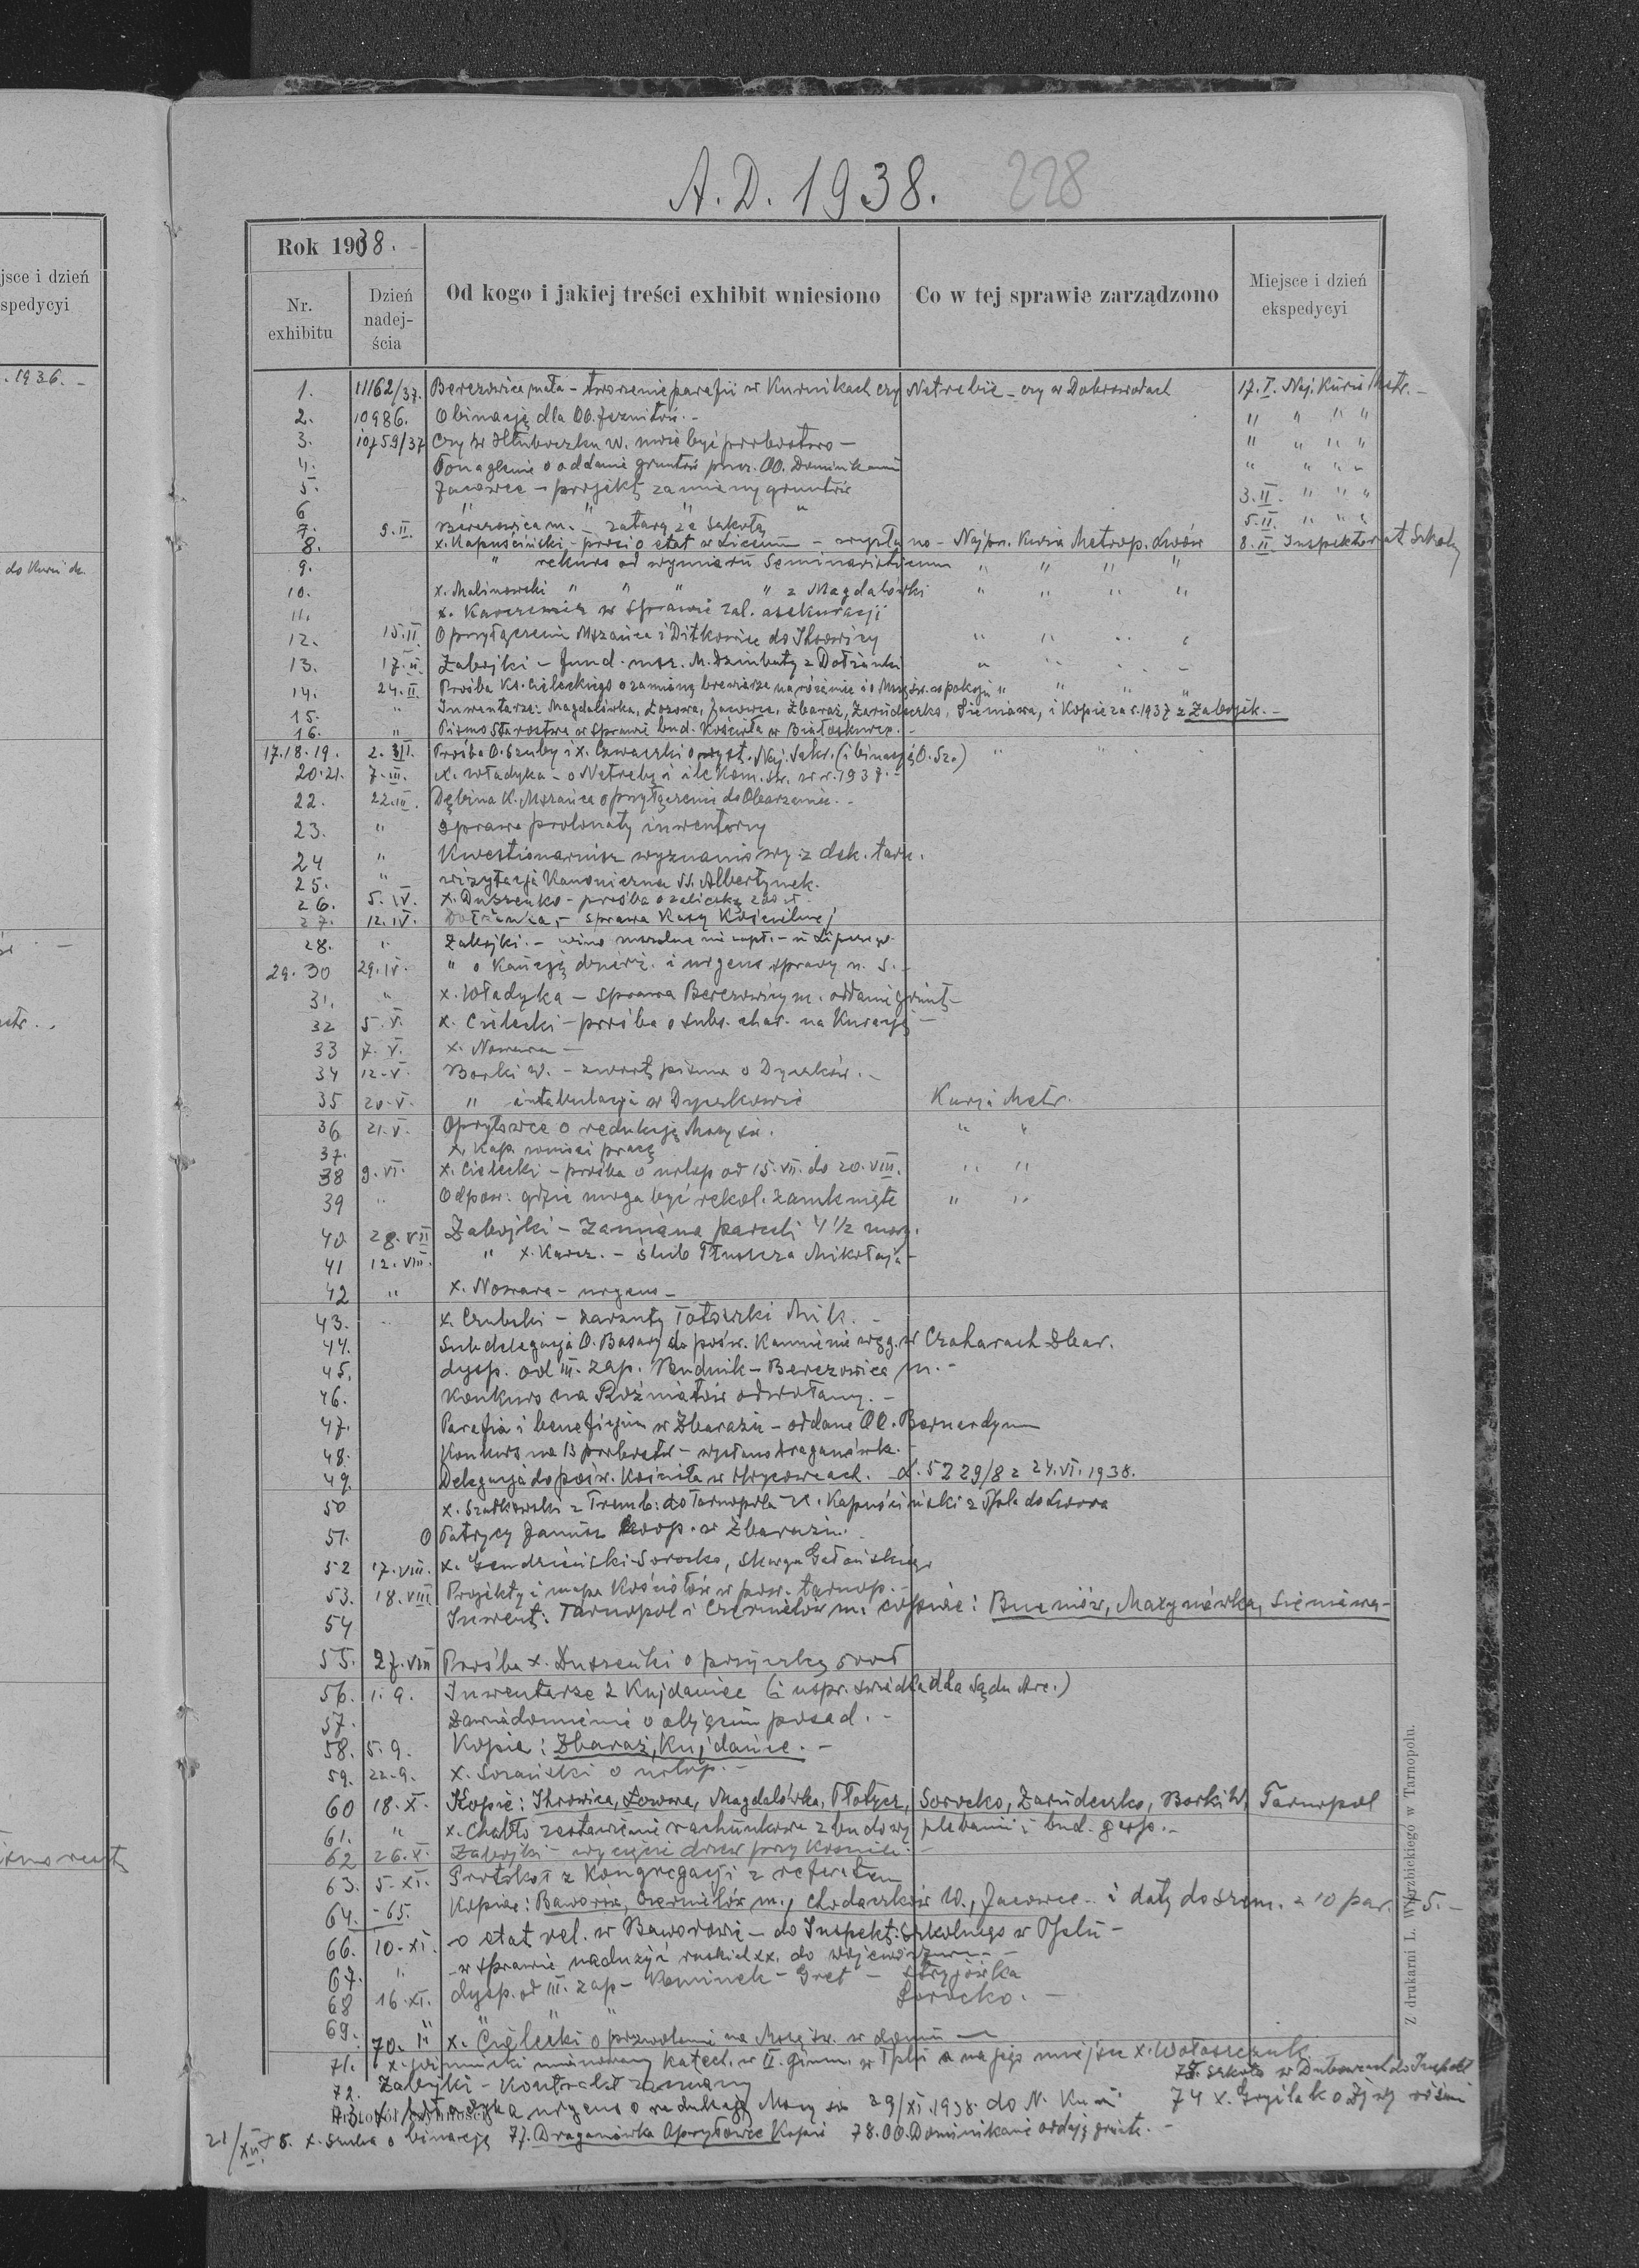 A. D. 1938. 228
Rok 1938.
Nr. exhibitu
Dzień nadejścia
Od kogo i jakiej treści exhibit wniesiono
Co w tej sprawie zarządzono
Miejsce i dzień ekspedycyi
jsce i dzień
spedycyi
. 1936. -
1. 11162/37. Berezowica mała - tworzenie parafii w Kurnikach czy Netrebie - czy w Dobrowodach 17. I. Naj. Kurii Metr. -
2. 10986. O binację dla OO. Jezuitów. - " " " "
3. 10759/37 Czy w Hłuboczku w. może być probostwo - " " " "
4. Ponaglenie o oddanie gruntów przez OO. Dominikanów " " " "
5. Jacowce - projekt zamiany gruntów 3. II. " " "
6 " " " " 5. II. " " "
7. 5. II. Berezowica m. - zatarg ze szkołą
8. x. Kapuściński - prosi o etat w Liceum - wysłano - Najprz. Kuria Metrop. Lwów 8. II Inspektorat Szkolny
9. " rekurs od wymiaru Seminaristicum " " " "
10. x. Malinowski " " " " z Magdalówki " " " "
11. x. w sprawie zal. asekuracji
12. 15. II O przyłączenie Mszańca i Ditkowiec do Ihrowicy " " " "
13. 17. II. Zabojki - fund. msz. M. z Dołżanki " " " "
14. 24. II Prośba Ks. Cieleckiego o zamianę brewiarza na różaniec i o Mszę św. " " "
15. " Inwentarze: Magdalówka, Łozowa, Jacowce, Zbaraż, Zarudeczko, Sieniawa, i Kopie za r. 1937 z Zabojek. -
16. " Pismo Starostwa w sprawie bud. Kościoła w
17. 18. 19. 2. III. Prośba O. Szuby i x. o wyst. Naj. Sakr. (i binację O. Sz.) " " "
20. 21. 7. III. x. Władyka - o Netrebę i ile Kom. św. w r. 1938. -
22. 22. III. Dębina K. Mszańca o przyłączenie do Obarzaniec. -
23. " Sprawa inwentarzy
24 " Kwestionariusz wyznaniowy z dek. tarn.
25. " wizytacja Kanoniczna SS. Albertynek.
26. 5. IV. x. Duszenko - prośba o zaliczkę 200 zł
27. 12. IV. Dołżanka, - sprawa Kasy Kościelnej
28. " Zabojki. - wino mszalne nie
29. 30 29. IV. " o Kaucję dzierż. i urgens sprawy n. s. -
31. " x. Władyka - sprawa Berezowicy m. oddanie gruntu -
32 5. V. x. Cielecki - prośba o na Kurację -
33 7. V. x. Nowara -
34 12. V. Borki W. - zwrot pisma o Dyczków. -
35 20. V. " intabulacja w Dyczkowie Kurja Metr.
36 21. V. Opryłowce o redukcję Mszy św. " "
37. x. Kap. wnosi pracę
38 9. VI. x. Cielecki - prośba o urlop od 15. VII. do 20. VIII. " "
39 " Odpow: gdzie mogą być rekol. zamknięte " "
40 28. VII Zabojki - Zamiana parceli 4 1/2 morg.
41 12. VIII. " x. Karcz. - ślub Tłuszcza Mikołaja -
42 " x. Nowara - urgens -
43. x. Czubski - zarzuty Mik. -
44. Subdelegacja O. Basary do pośw. Kamienia węg. w Czaharach Zbar.
45. dysp. od III. zap. Rudnik - Berezowica m. -
46. Konkurs na Rożniatów odwołany. -
47. Parafia i beneficjum w Zbarażu - oddane OO. Bernardynom
48. Konkurs na 13 probostw - wysłano Draganówk. -
49. Delegacja do pośw. Kościoła w Hrycowcach. L. 5229/8 z 24. VI. 1938.
50 x. Szałkowski z Tremb: do Tarnopola - x. Kapuściński z Tpola do Lwowa
51. O Patrycy Janusz koop. w Zbarażu.
52 17. VIII. x. Gendziński - Sorocko, skarga
53. 18. VIII Projekty i mapa Kościołów w pow. tarnop. -
54 Inwent: Tarnopol i Czernielów m. Kopie: Bucniów, Maxymówka, Sieniawa -
55. 27. VIII Prośba x. Duszeńki o pożyczkę 500 zł
56. 1. 9. Inwentarze z Kujdaniec (i dla Sądu Arc.)
57. Zawiadomienie o objęciu posad. -
58. 5. 9. Kopie: Zbaraż, Kujdańce. -
59. 22. 9. x. o urlop. -
60 18. X. Kopie: Ihrowica, Łozowa, Magdalówka, Płotycz, Sorocko, Zarudeczko, Borki W. Tarnopol
61. " x. Chabło zestawienie rachunkowe z budowy plebanii i bud. gosp. -
62 26. X. Zabojki - wycięcie drzew przy kościele. -
63. 5. XI. Protokół z Kongregacji z referatem
64. - 65. Kopie: Baworów, Czernielów m., Chodaczków W., Jacowce - i daty do szem. z 10 par. 5. -
66. 10. XI. o etat rel. w Baworowie - do Inspekt. szkolnego w Tpolu -
67. " - w sprawie nadużyć ruskich xx. do województwa -
68 16. XI. dysp. od III. zap - Kominek - Gret - Stryjówka
69. " " " Sorocko. -
70. " x. Cielecki o pozwolenie na Mszę św. w domu -
71. x. mianowany katech. w II. gimn. w Tplu a na jego miejsce x. Wołoszczuk
72. Zabojki - Kontrakt zamiany 75. szkoła w do Inspekt
73. x. Władyka urgens o redukcję Mszy św 29/XI. 1938 do N. Kurii 74 x.
Protokół czynności
21/XII. x. Szuba o binację 77. Draganówka Opryłowce Kopie 78. OO. Dominikanie oddają grunt. -
Z drukarni L. Wierzbickiego w Tarnopolu.